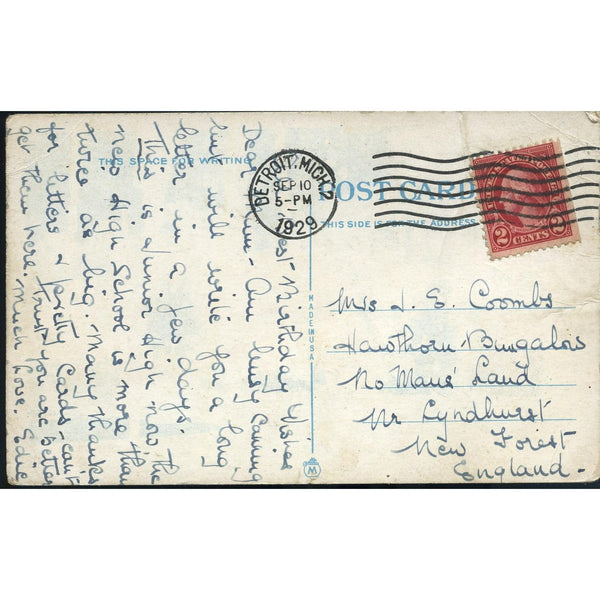 Best Birthday Wishes
Dear - Am busy Canning
but will write you a long
letter in a few days.
This is a Junior High now the
new High School is more than
twice as big. Many thanks
for letters & pretty Cards - can't
get them here. Trust you are better
Much Love. Edie
THIS SPACE FOR WRITING
POST CARD
THIS SIDE IS FOR THE ADDRESS
MADE IN USA
M
DETROIT, MICH. 2
SEP 10
5-PM
1929
2 CENTS 2
Mrs J. E. Coombs
Hawthorn Bungalow
No Mans' Land
Nr Lyndhurst
New Forest
England -